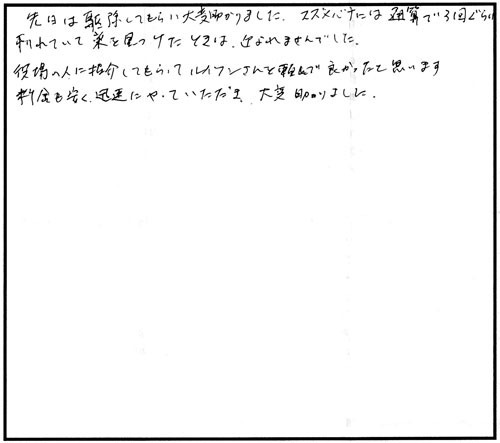 先日は駆除してもらい大変助かりました。スズメバチには通算で3回ぐらい
刺れていて巣を見つけたときは、近よれませんでした。
役場の人に紹介してもらってルイワンさんを頼んで良かったと思います
料金も安く、迅速にやっていただき、大変助りました。